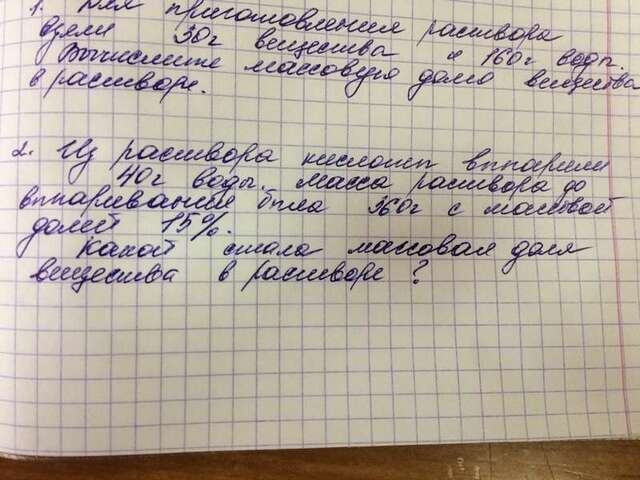 1. Для приготовления раствора
взяли 30г вещества и 160г воды.
Вычислите массовую долю вещества
в растворе.
2. Из раствора кислоты выпарили
40г воды. Масса раствора до
выпаривания была 360г с массовой
долей 15%.
Какой стала массовая доля
вещества в растворе?